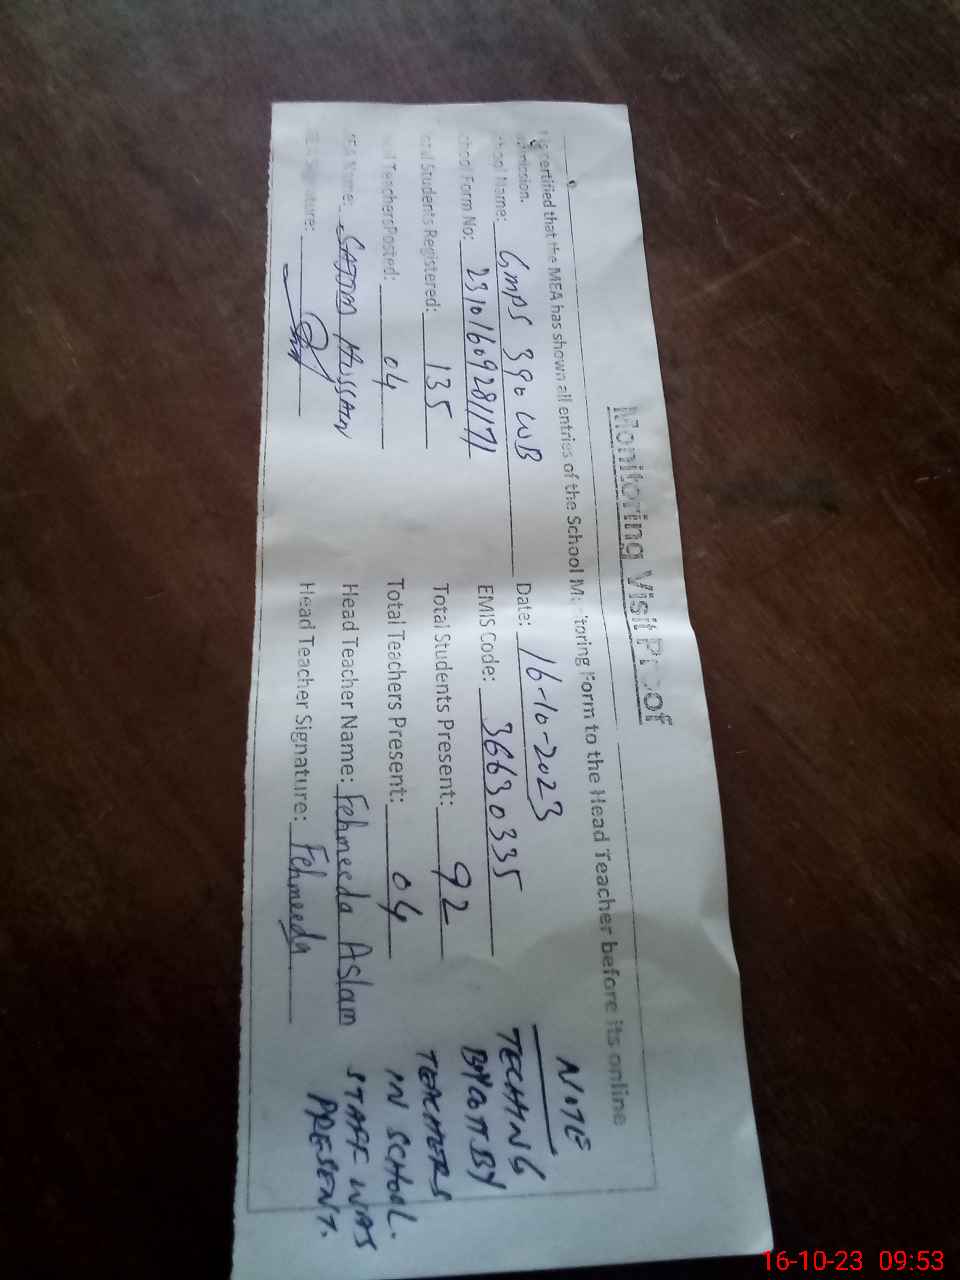 Monitoring Visit Proof
certified that the MEA has shown all entries of the School Monitoring Form to the Head Teacher before its online
mission.
School Name: GMPS 390 WB Date: 16-10-2023
School Form No: 23101609281171 EMIS Code: 36630335
Total Students Registered: 135 Total Students Present: 92
Total Teachers Posted: 04 Total Teachers Present: 04
MEA Name: HUSSAIN Head Teacher Name: Fehmeeda Aslam
MEA Signature: Head Teacher Signature: Fehmeeda
NOTE
TECHING
BYCOTT BY
TEACHERS
IN SCHOOL.
STAFF WAS
PRESENT.
16-10-23 09:53